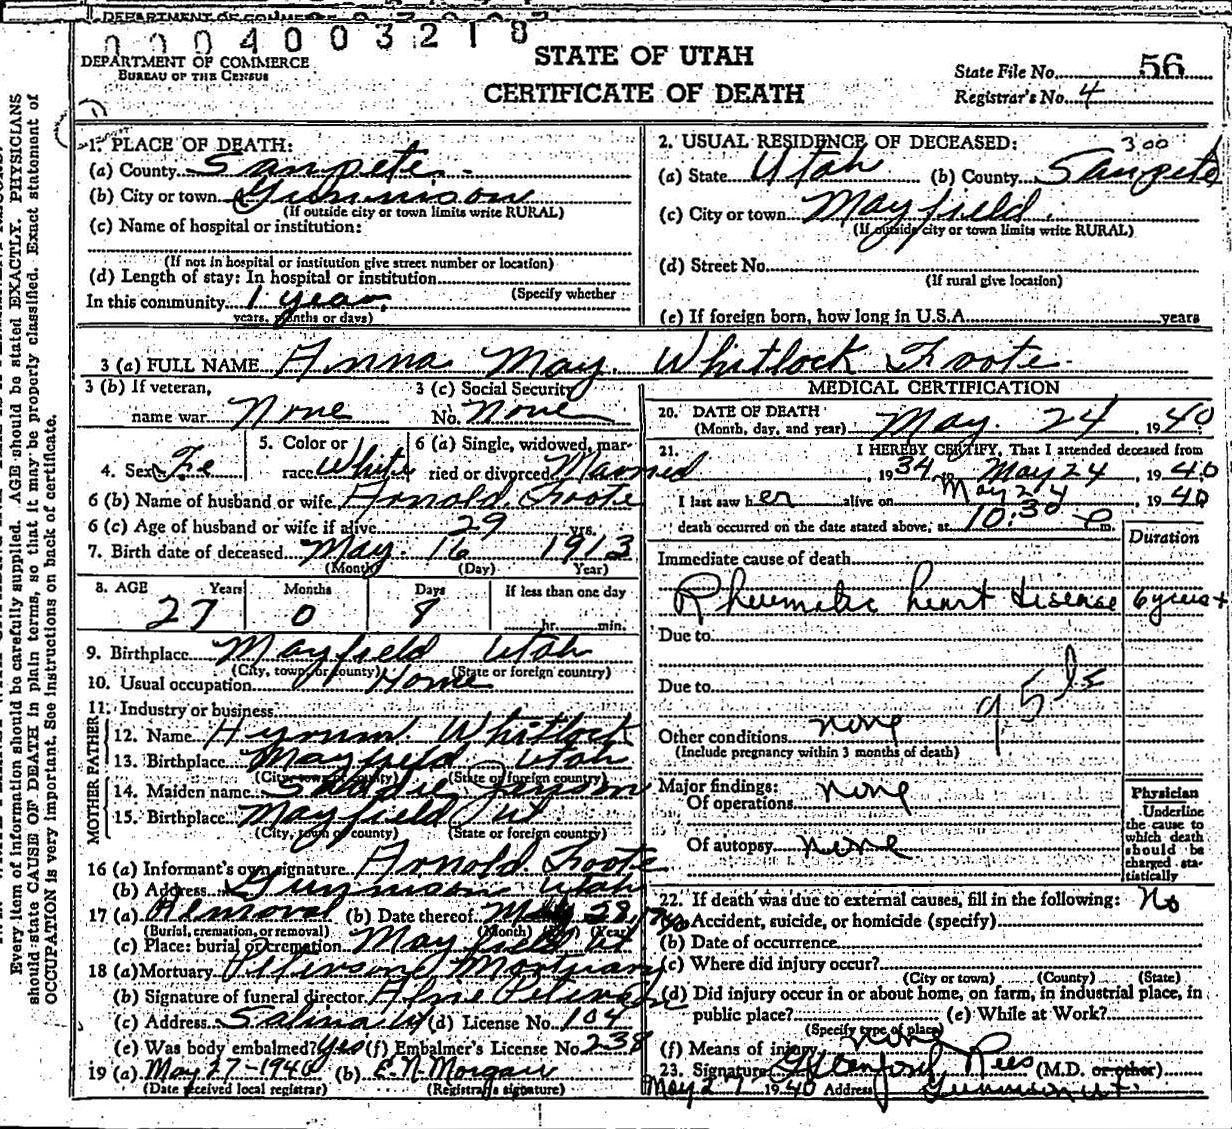 DEPARTMENT OF COMMERCE
0004003218
DEPARTMENT OF COMMERCE
BUREAU OF THE CENSUS
STATE OF UTAH
CERTIFICATE OF DEATH
State File No. 56
Registrar's No. 4
Every item of information should be carefully supplied. AGE should be stated EXACTLY. PHYSICIANS
should state CAUSE OF DEATH in plain terms, so that it may be properly classified. Exact statement of
OCCUPATION is very important. See instructions on back of certificate.
1. PLACE OF DEATH:
(a) County Sanpete
(b) City or town Gunnison
(If outside city or town limits write RURAL)
(c) Name of hospital or institution:
(If not in hospital or institution give street number or location)
(d) Length of stay: In hospital or institution
(Specify whether
In this community 1 year
years, months or days)
2. USUAL RESIDENCE OF DECEASED:
300
(a) State Utah (b) County Sanpete
(c) City or town Mayfield
(If outside city or town limits write RURAL)
(d) Street No.
(If rural give location)
(e) If foreign born, how long in U.S.A. years
3 (a) FULL NAME Anna May Whitlock Foote
3 (b) If veteran,
name war None
3 (c) Social Security
No. None
4. Sex Fe
5. Color or
race White
6 (a) Single, widowed, mar-
ried or divorced Married
6 (b) Name of husband or wife Arnold Foote
6 (c) Age of husband or wife if alive 29 yrs.
7. Birth date of deceased May 16 1913
(Month) (Day) Year)
8. AGE Years Months Days If less than one day
27 0 8 hr. min.
9. Birthplace Mayfield Utah
(City, town or county) (State or foreign country)
10. Usual occupation Home
11. Industry or business
FATHER
12. Name Hyrum Whitlock
13. Birthplace Mayfield Utah
(City, town or county) (State or foreign country)
MOTHER
14. Maiden name
15. Birthplace Mayfield Ut
(City, town or county) (State or foreign country)
16 (a) Informant's own signature Arnold Foote
(b) Address Gunnison Utah
17 (a) Removal (b) Date thereof May 28
(Burial, cremation, or removal) (Month) (Year)
(c) Place: burial or cremation Mayfield Ut
18 (a) Mortuary Petersons Mortuary
(b) Signature of funeral director
(c) Address Salina Ut (d) License No. 104
(e) Was body embalmed? Yes (f) Embalmer's License No. 238
19 (a) May 27-1940 (b) E.N. Morgan
(Date received local registrar) (Registrar's signature)
MEDICAL CERTIFICATION
20. DATE OF DEATH
(Month, day, and year) May 24, 1940
21. I HEREBY CERTIFY, That I attended deceased from
, 1934, May 24, 1940
I last saw her alive on May 24, 1940
death occurred on the date stated above, at 10:30 P m.
Duration
Immediate cause of death
Rheumatic heart disease 6 years +
Due to
Due to
95
Other conditions none
(Include pregnancy within 3 months of death)
Major findings:
Of operations none
Of autopsy none
Physician
Underline
the cause to
which death
should be
charged sta-
tistically
22. If death was due to external causes, fill in the following: No
Accident, suicide, or homicide (specify)
(b) Date of occurrence
(c) Where did injury occur?
(City or town) (County) (State)
(d) Did injury occur in or about home, on farm, in industrial place, in
public place? (e) While at Work?
(Specify type of place)
(f) Means of injury none
23. Signature Rees (M.D. or other)
May 27 1940 Address Gunnison Ut.